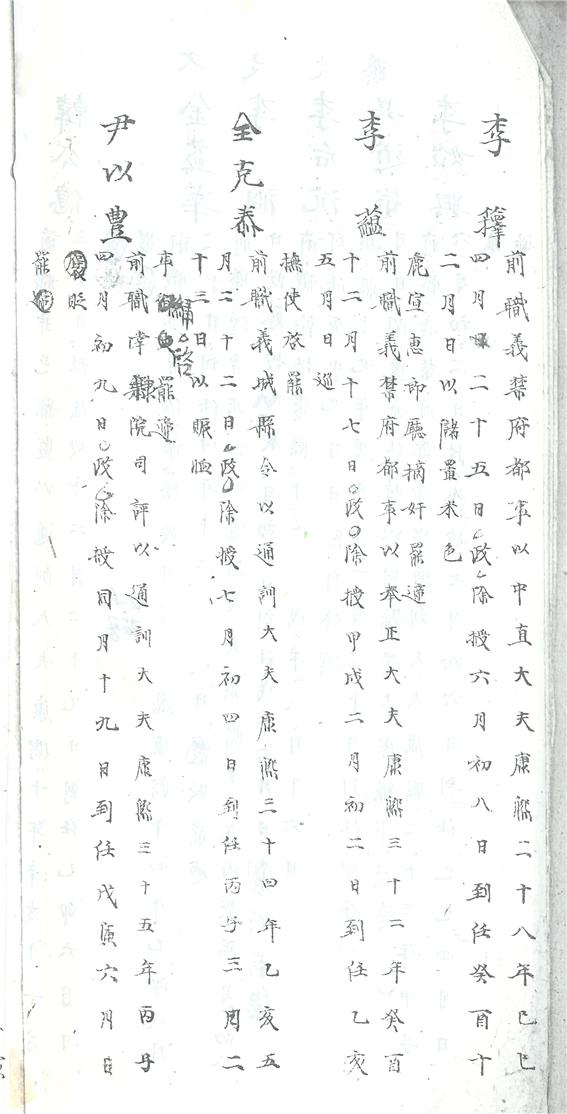 李
前職義禁府都事以中直大夫康熙二十八年己巳
四月二十五日政除授六月初八日到任癸酉十
二月日以儲置米色
鹿宣惠郎廳摘奸罷遞
李蘊
前職義禁府都事以奉正大夫康熙三十二年癸酉
十二月十七日政除授甲戌二月初二日到任乙亥
五月日巡
撫使啟罷
全克泰
前職義城縣令以通訓大夫康熙三十四年乙亥五
月二十二日政除授七月初四日到任丙子三月二
十三日以賑恤
事繡啓罷遞
尹以豊
前職掌隷院司評以通訓大夫康熙三十五年丙子
四月初九日政除授同月十九日到任戊寅六月日
賑
罷